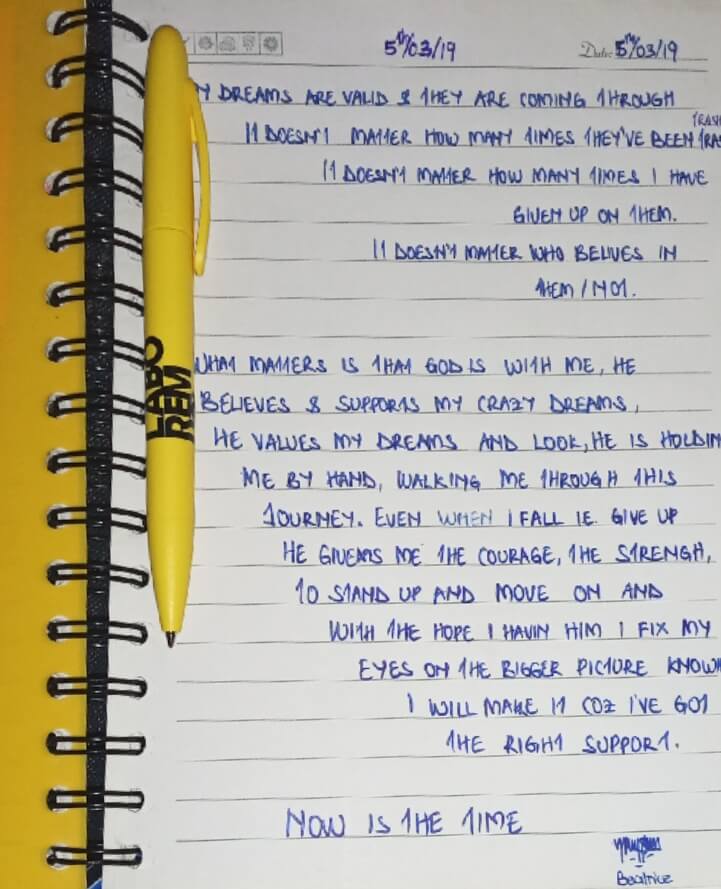 5th/03/19
Date: 5th/03/19
Y DREAMS ARE VALID & THEY ARE COMING THROUGH
TRASH
IT DOESN'T MATTER HOW MANY TIMES THEY'VE BEEN TRA
IT DOESN'T MATTER HOW MANY TIMES I HAVE
GIVEN UP ON THEM.
IT DOESN'T MATTER WHO BELIVES IN
THEM / NOT.
WHAT MATTERS IS THAT GOD IS WITH ME, HE
BELIEVES & SUPPORTS MY CRAZY DREAMS,
HE VALUES MY DREAMS AND LOOK, HE IS HOLDIN
ME BY HAND, WALKING ME THROUGH THIS
JOURNEY. EVEN WHEN I FALL IE. GIVE UP
HE GIVEMS ME THE COURAGE, THE STRENGH,
TO STAND UP AND MOVE ON AND
WITH THE HOPE I HAVIN HIM I FIX MY
EYES ON THE BIGGER PICTURE KNOWI
I WILL MAKE IT COZ I'VE GOT
THE RIGHT SUPPORT.
NOW IS THE TIME
Beatrice
LABO
REM